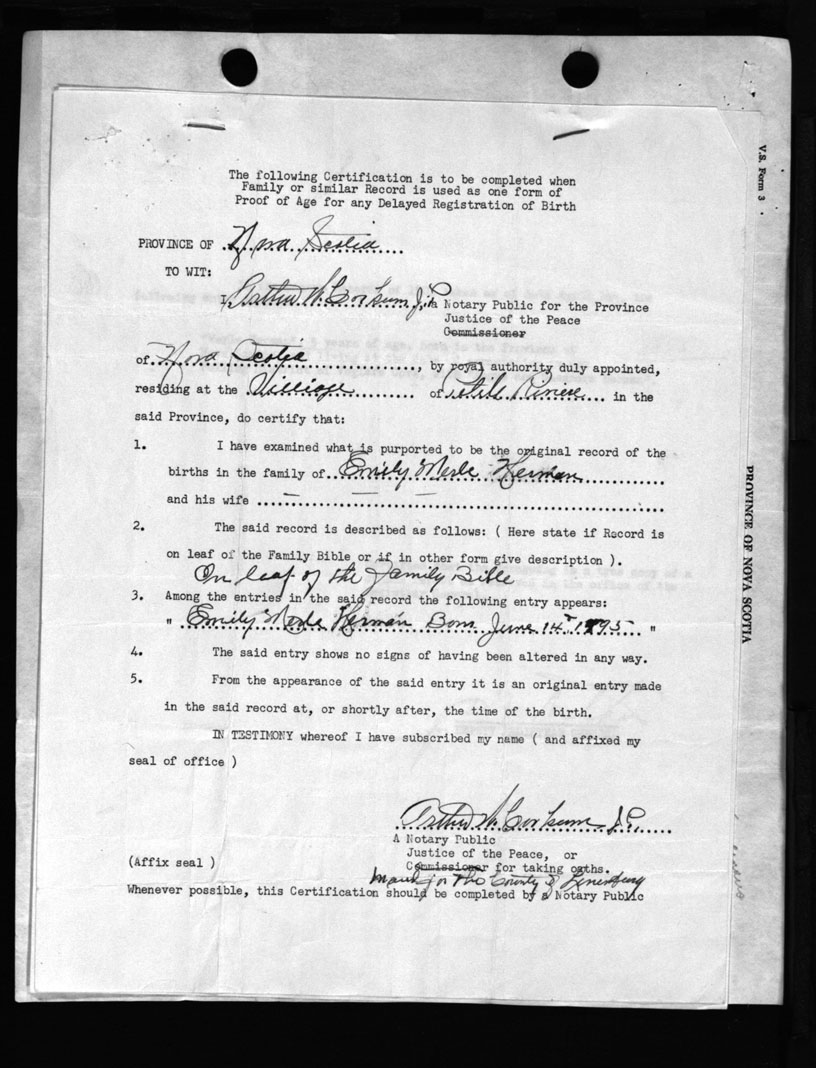 The following Certification is to be completed when
Family or similar Record is used as one form of
Proof of Age for any Delayed Registration of Birth
V.S. Form 3
PROVINCE OF Nova Scotia
TO WIT:
I Arthur W. Corkum J.P. a Notary Public for the Province
Justice of the Peace
Commissioner
of Nova Scotia, by royal authority duly appointed,
residing at the Village of Petite Riviere in the
said Province, do certify that:
1. I have examined what is purported to be the original record of the
births in the family of Emily Merle Herman
and his wife — — —
2. The said record is described as follows: ( Here state if Record is
on leaf of the Family Bible or if in other form give description ).
On leaf of the Family Bible
3. Among the entries in the said record the following entry appears:
" Emily Merle Herman Born June 14th 1895 "
4. The said entry shows no signs of having been altered in any way.
5. From the appearance of the said entry it is an original entry made
in the said record at, or shortly after, the time of the birth.
IN TESTIMONY whereof I have subscribed my name ( and affixed my
seal of office )
Arthur W. Corkum J.P.
A Notary Public
Justice of the Peace, or
(Affix seal )
Commissioner for taking oaths.
in and for the County of Lunenburg
Whenever possible, this Certification should be completed by a Notary Public
PROVINCE OF NOVA SCOTIA